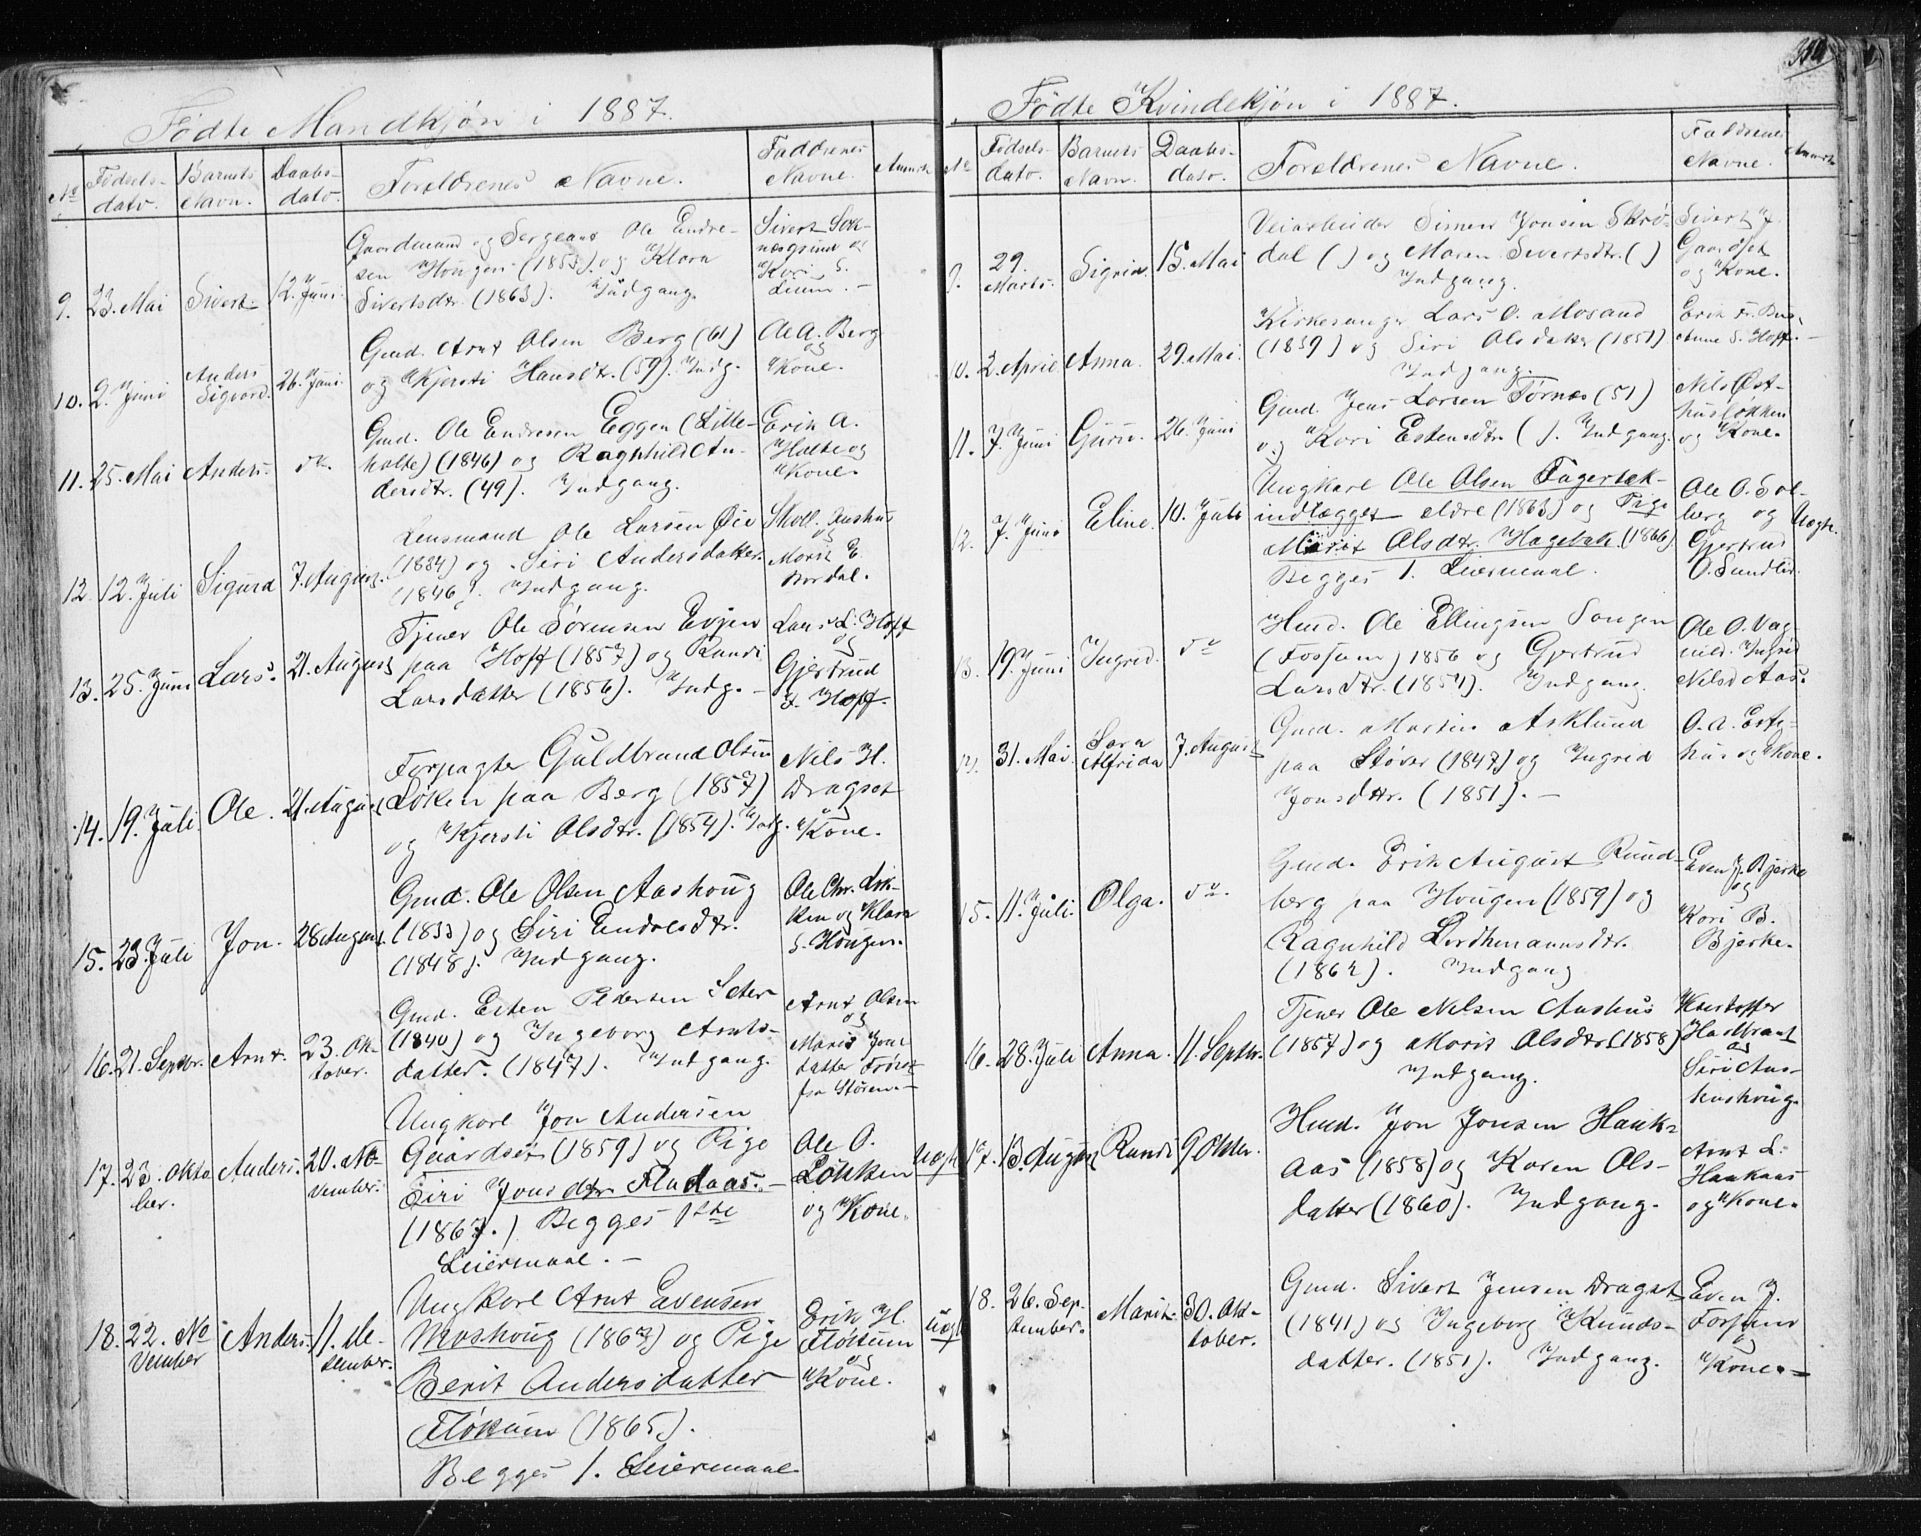 Fødte Mandkjøn i 1887.
No
Fødsels-
dato.
Barnets
Navn.
Daabs-
dato.
Forældrenes Navne.
Faddrenes
Navne.
Anmrk.
9. 23. Mai Sivert 12. Juni.
Gaardmand og Sergeant Ole Endre-
sen Hougen (1853) og Klara
Sivertsdtr. (1863). Indgang.
Sivert Sok-
næsgrind og
Kari S.
10. 2. Juni Anders
Sigvard. 26. Juni.
Gmd. Arnt Olsen Berg (61)
og Kjersti Hansdtr. (59). Indg.
Ole A. Berg
og
Kone.
11. 25. Mai Anders. do.
Gmd. Ole Endresen Eggen (Lille-
halte) (1846) og Ragnhild An-
dersdtr. (49). Indgang.
Erik A.
Halte og
Kone.
12. 12. Juli Sigurd 7. August.
Lensmand Ole Larsen Øie
(1834) og Siri Andersdatter
(1846). Indgang.
Skoll. Aashus
og
Marit E.
Bordal.
13. 25. Juni Lars. 21. August
Tjener Ole Sørensen Evjen
paa Hoff (1857) og Randi
Larsdatter (1856). Indg. -
Lars L. Hoff
og
Gjertrud
L. Hoff.
14. 19. Juli. Ole. 21. August
Forpagter Guldbrand Olsen
Løken paa Berg (1857)
og Kjersti Olsdtr. (1854). Indg.
Nils H.
Dragset
og
Kone.
15. 23. Juli Jon. 28 August.
Gmd. Ole Olsen Aashoug
(1833) og Siri Endresdtr.
(1848). Indgang.
Ole Chr. Løk-
ken og Klara
S. Hougen.
16. 21. Septbr. Arnt. 23. Ok-
tober.
Gmd. Esten Pedersen Seter
(1840) og Ingeborg Arnts-
datter. (1847). Indgang.
Arnt Olsen
og
Marit Jons
datter
fra Støren. -
17. 23. Okto-
ber. Anders. 20. No-
vember.
Ungkarl Jon Andersen
Gaardset (1859) og Pige
Siri Jonsdtr. Fladaas. -
(1867.) Begges 1ste
Leiermaal. -
Ole O.
Løkken
og Kone.
Uægte
18. 22. No-
vember Anders. 11. De-
cember.
Ungkarl Arnt Evensen
Moshoug (1867) og Pige
Berit Andersdatter
Fløttum (1865).
Begges 1. Leiermaal
Erik H.
Fløttum
og
Kone.
Uægte
Fødte Kvindekjøn i 1887.
No
Fødsels-
dato.
Barnets
Navn.
Daabs-
dato.
Forældrenes Navne.
Faddrenes
Navne.
Anmrk.
9. 29.
Marts. Sigrid. 15. Mai
Veiarbeider Simen Jonsen Skrø-
dal ( ) og Maren Sivertsdtr. ( )
Indgang.
Sivert J.
Gaardset
og Kone.
10. 2. April Anna. 29. Mai.
Kirkesanger Lars O. Mosand
(1839) og Siri Olsdatter (1851)
Indgang.
Anne S. Hoff. -
11. 7. Juni Guru. 26. Juni
Gmd. Jens Larsen Tørnes (51)
og Kari Estensdtr. ( ). Indgang.
Nils Øst-
husløkken
og Kone.
12. 7. Juni Eline. 10. Juli
Ungkarl Ole Olsen Fagerbek-
indlægget eldre (1863) og Pige
Marit Olsdtr. Hagebak (1866)
Begges 1. Leiermaal.
Ole O. Sol-
berg og
Gjertrud
O. Sundlid.
Uægte.
13. 19. Juni Ingrid. do
Hmd. Ole Ellingsen Songen
(Fossum) 1856 og Gjertrud
Larsdtr. (1854). Indgang.
Ole O. Vag-
nild. Ingrid
Nilsd Aas.
14. 31. Mai. Sara
Alfrida 7. August
Gmd. Martin Asklund
paa Støver (1847) og Ingrid
Jonsdtr. (1851). -
O. A. Este-
hus og Kone.
15. 11. Juli. Olga. do.
Gmd. Erik August Rund-
berg paa Hougen (1859) og
Ragnhild Lordhmannsdtr.
(1862). Indgang
Even J. Bjerke
og
Kari B.
Bjerke.
16. 28. Juli Anna. 11. Septbr.
Tjener Ole Nilsen Aashus
(1857) og Marit Olsdtr. (1858)
Indgang.
og
Siri Aas-
hushoug.
17. 13. August Randi 9 Oktbr.
Hmd. Jon Jonsen Hauk-
aas (1858) og Karen Ols-
datter (1860). Indgang.
Arnt L.
Haukaas
og Kone.
18. 26. Sep-
tember. Marit. 30. Ok-
tober.
Gmd. Sivert Jensen Dragset
(1841) og Ingeborg Knuds-
datter. (1851). Indgang.
Even J.
Fossum
og
Kone. -